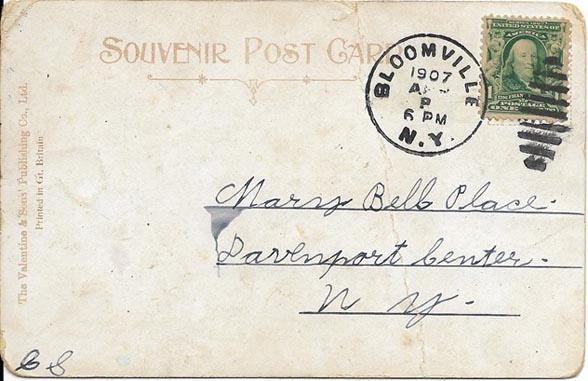 SOUVENIR POST CARD
BLOOMVILLE
1907
6 PM
N.Y.
UNITED STATES OF
AMERICA
POSTAGE
ONE
The Valentine & Sons' Publishing Co., Ltd.
Printed in Gt. Britain
Mary Bell Place.
Davenport Center.
N Y.